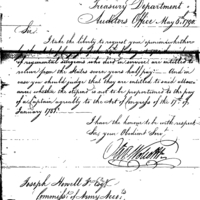 Treasury Department
Auditors Office May 5. 1792
Sir
I take the liberty to request your opinion whether
of regimental surgeons who died in service are entitled to
return from the States seven years half pay; And in
case you should judge that they are entitled to and allow-
ance whether the stipend is not to be proportioned to the pay
of a Captain agreeably to the Act of Congress of the 17th of
January 1781.
I have the honor to be with respect
Sir, your Obedient Serv
Joseph Howell Jr Esqr
Commissr of Army Accts